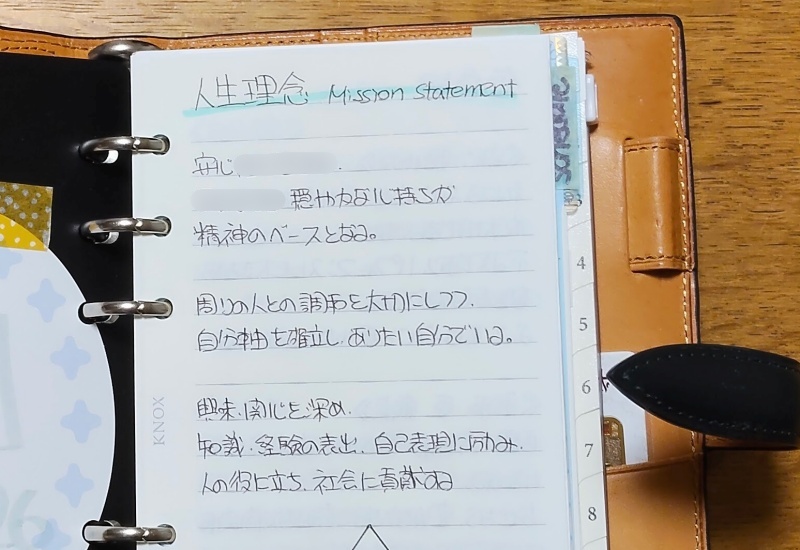 人生理念 Mission Statement
安心
穏やかな心持ちが
精神のベースとなる。
周りの人との調和を大切にしつつ、
自分軸を確立し、ありたい自分でいる。
興味、関心を深め、
知識・経験の表出、自己表現に励み、
人の役に立ち、社会に貢献する
schedule
4
5
6
7
8
KNOX